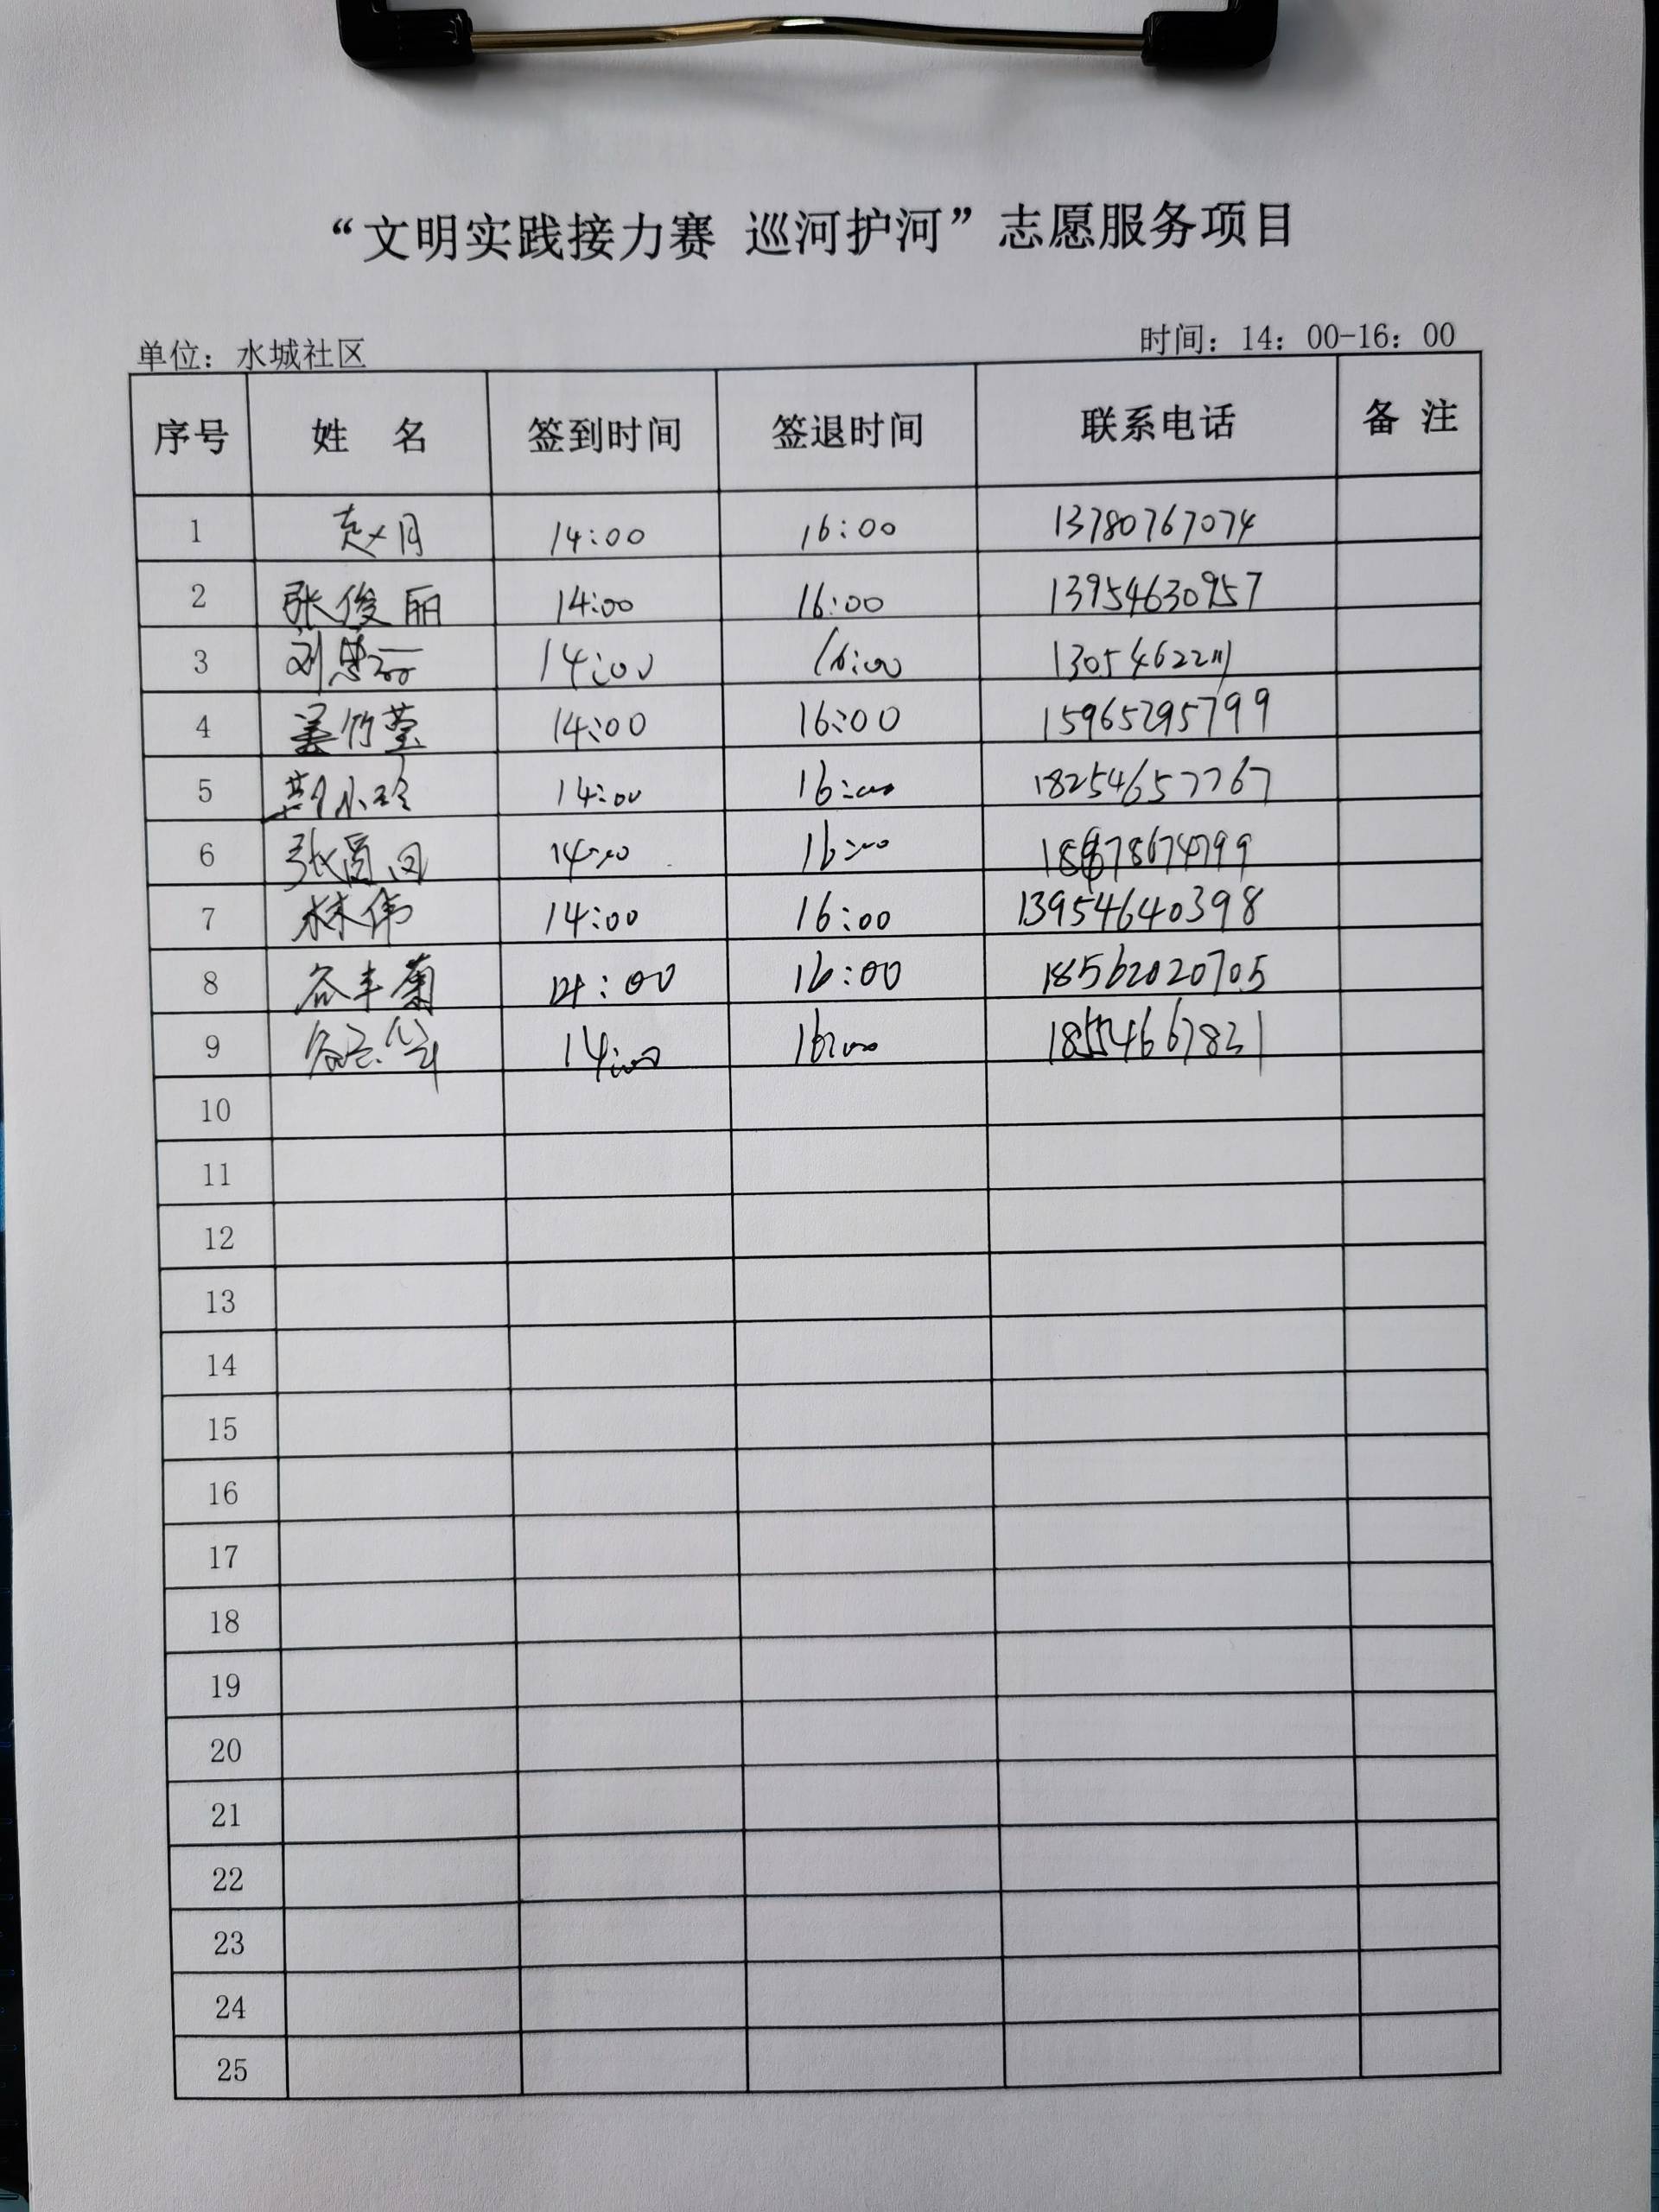 “文明实践接力赛 巡河护河”志愿服务项目
单位：水城社区 时间：14：00-16：00
序号 姓 名 签到时间 签退时间 联系电话 备 注
1 赵月 14:00 16:00 13780767074
2 张俊丽 14:00 16:00 13954630957
3 刘思 14:00 16:00 13054622111
4 姜竹莹 14:00 16:00 15965295799
5 小玲 14:00 16:00 18254657767
6 张 14:00 16:00
7 林伟 14:00 16:00 13954640398
8 谷丰菊 14:00 16:00 18562020705
9 谷 14:00 16:00
10
11
12
13
14
15
16
17
18
19
20
21
22
23
24
25